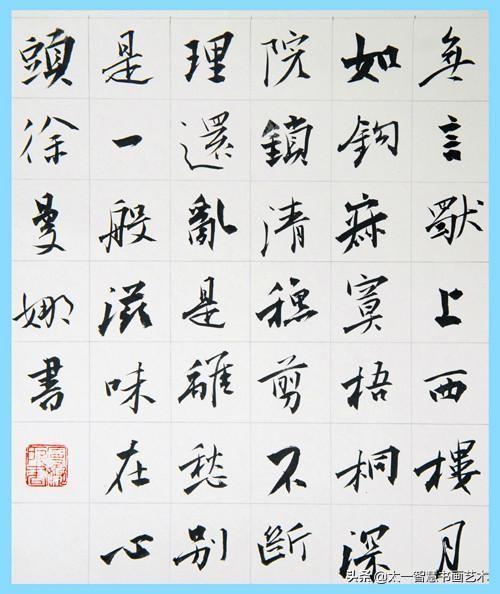 無言獨上西樓月
如鈎寂寞梧桐深
院鎖清秋剪不斷
理還亂是離愁別
是一般滋味在心
頭徐曼娜書
头条@太一智慧书画艺术